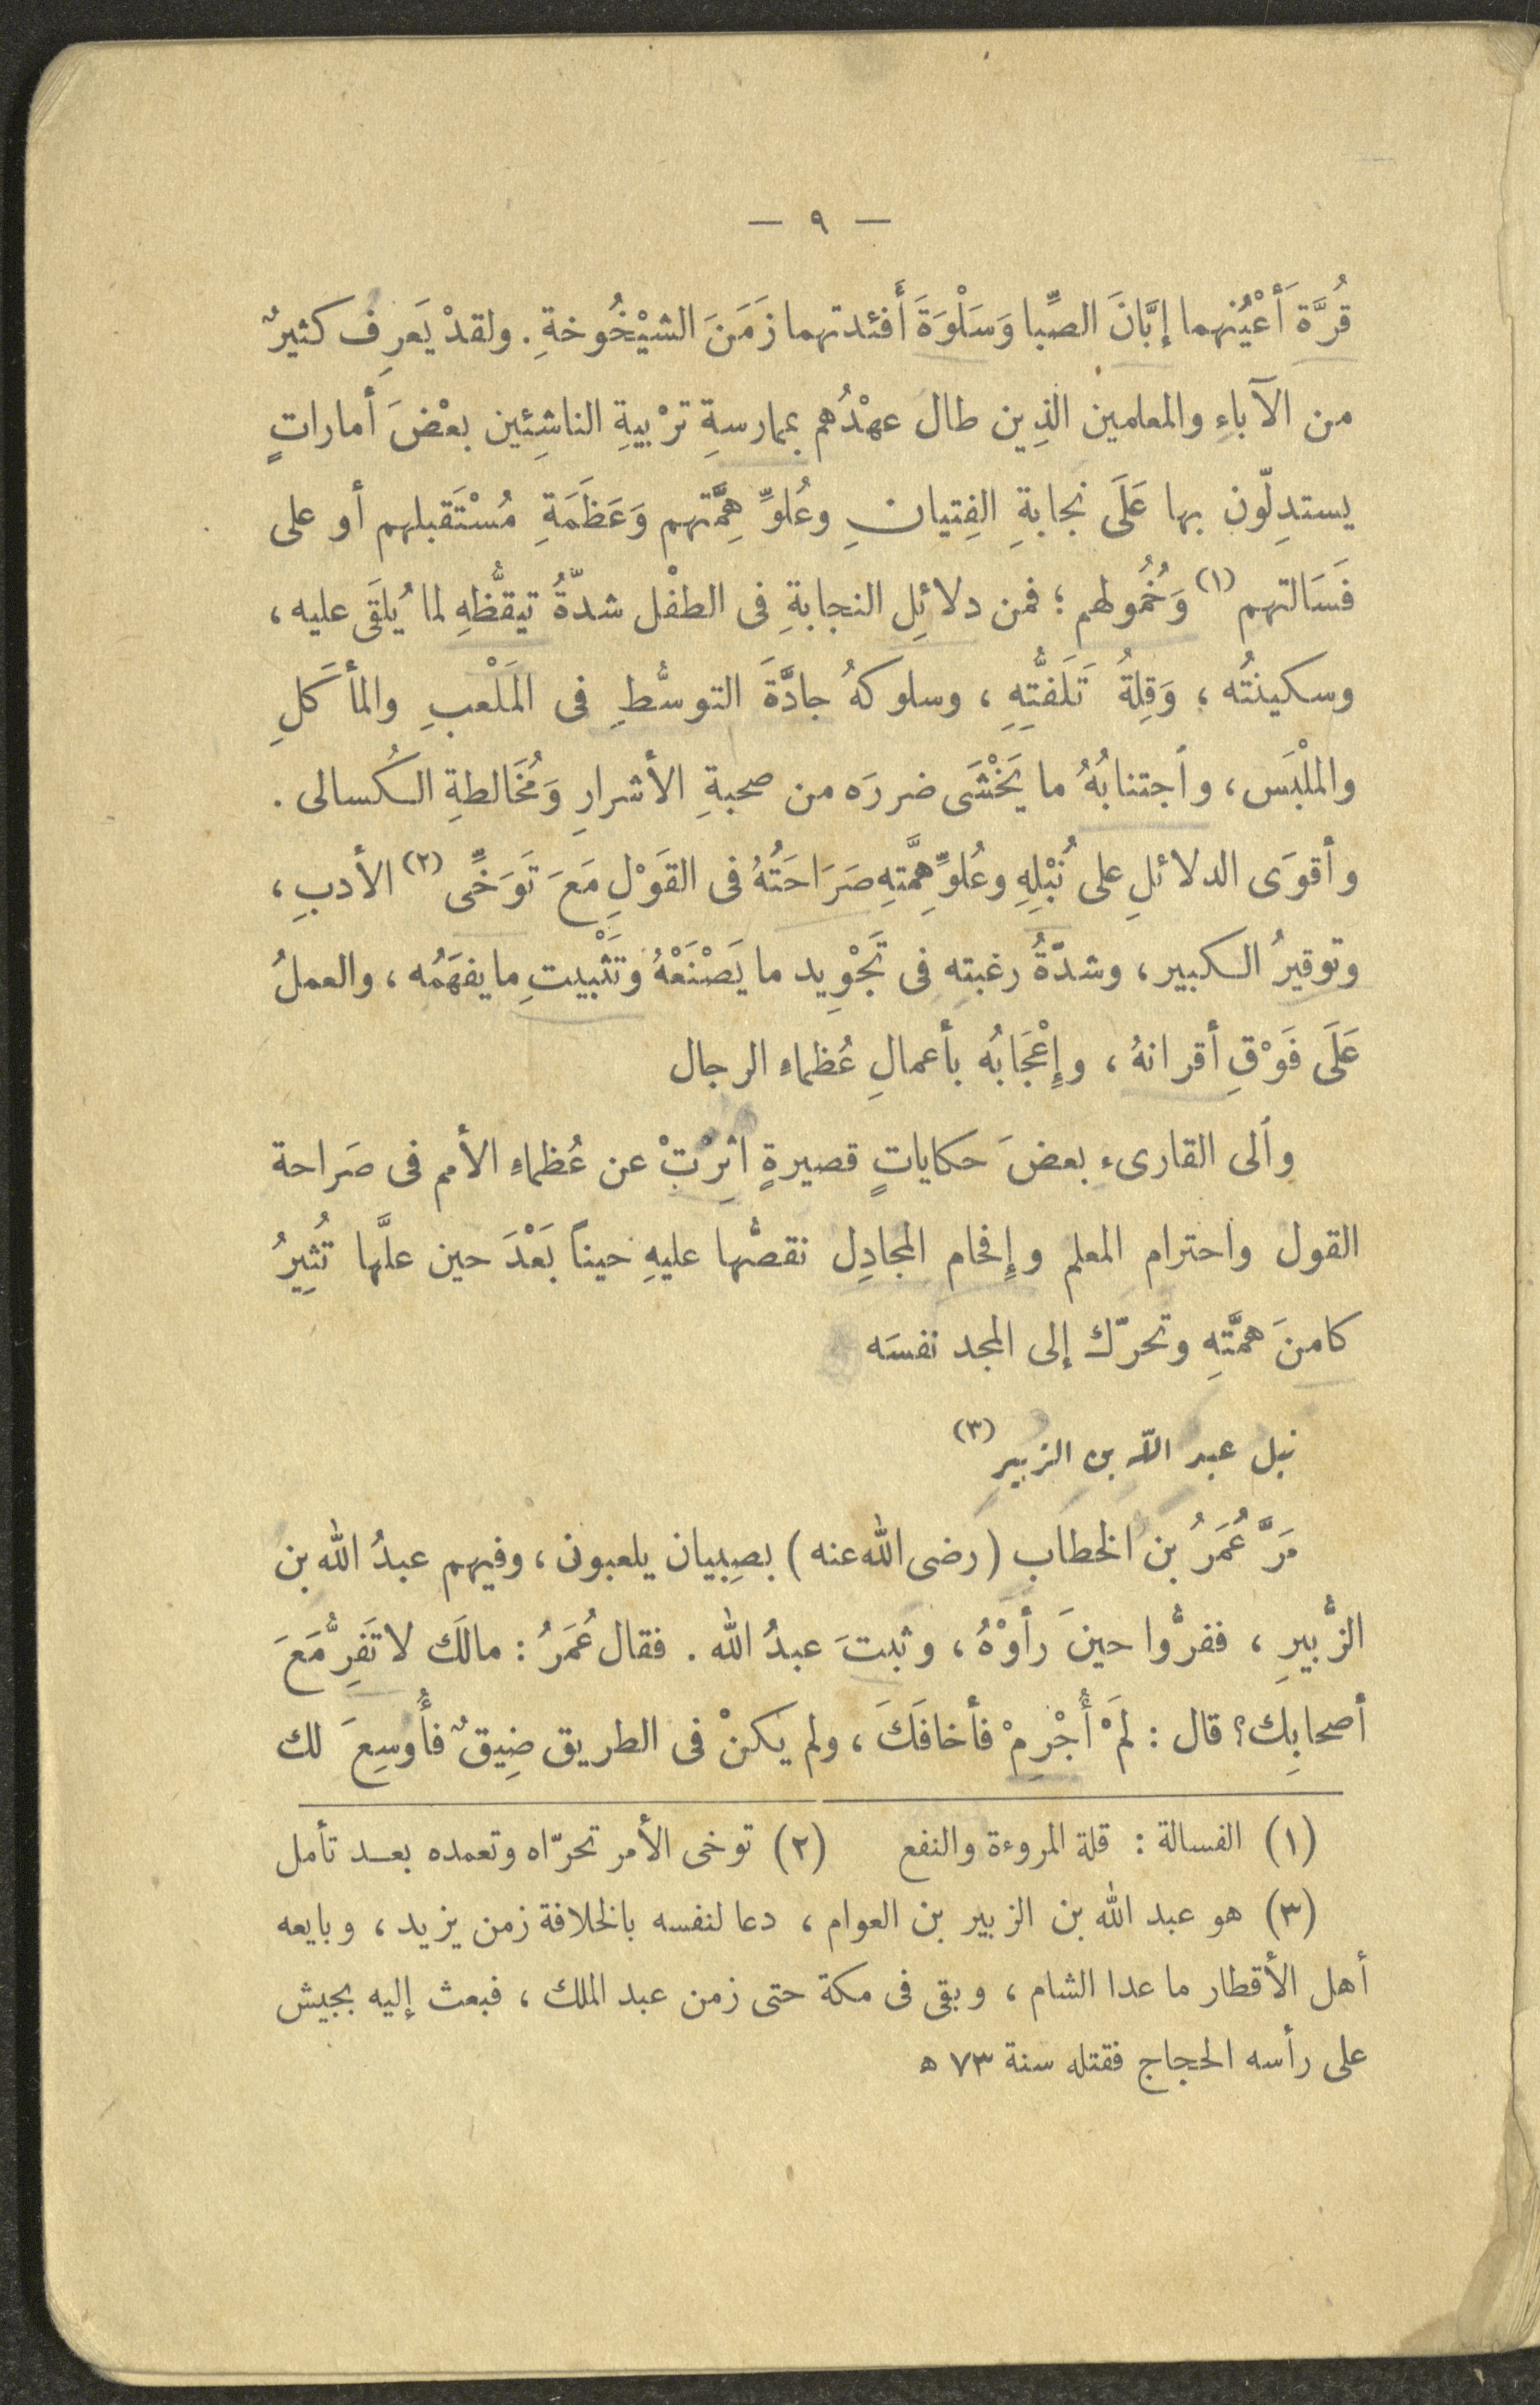 — ٩ —
قُرَّة أَعْيُنهما إبَّانَ الصِّبا وَسَلْوَةَ أَفئدتهما زَمَنَ الشيْخُوخةِ. ولقدْ يَعَرِف كثيرٌ
من الآباءِ والمعلمين الذِين طال عهْدُهم بممارسةِ ترْبيةِ الناشِئِين بعْضَ أماراتٍ
يستدِلّون بها عَلَى نجابةِ الفِتيانِ وعُلوِّ هِمَّتهم وَعَظَمَةِ مُسْتَقبلهم أو على
فَسَالتهم (١) وَخُمُولهم ؛ فمن دلائِلِ النجابةِ فى الطفْل شدّةُ تيقُّظهِ لما يُلقَى عليه ،
وسكينتُه ، وَقِلةُ تَلَفتُّهِ ، وسلوكهُ جادَّةَ التوسُّطِ فى المَلْعبِ والمأكَلِ
والملْبَس ، واجتنابُهُ ما يَخْشَى ضررَه من صحبةِ الأشرارِ وَمُخَالطةِ الكُسالى .
وأقوَى الدلائلِ على نُبْلِهِ وعُلوِّ هِمَّتهِ صَرَاحَتُهُ فى القَوْلِ مَعَ تَوَخِّى (٢) الأدبِ ،
وتوقيرُ الكبير ، وشدّةُ رغبته فى تَجْوِيد ما يَصْنَعْهُ وتَثْبيتِ ما يفهَمُه ، والعملُ
عَلَى فَوْقِ أقرانهُ ، وإِعْجَابُه بأعمالِ عُظماءِ الرجال
والى القارىء بعضَ حكاياتٍ قصيرةٍ اثِرتْ عن عُظماءِ الأمم فى صَراحة
القول واحترام المعلم وإِفحام المجادِل نقصُّها عليهِ حيناً بَعْدَ حين علَّها تُثِيرُ
كامنَ همَّتهِ وتحرّك إلى المجد نفسَه
نبل عبد الله بن الزبير (٣)
مَرَّ عُمَرُ بن الخطاب (رضى الله عنه) بصِبيان يلعبون ، وفيهم عبدُ الله بن
الزُّبيرِ ، ففرُّوا حينَ رأوْهُ ، وثبتَ عبدُ الله . فقال عُمَرُ : مالَك لا تَفِرُّ مَعَ
أصحابِك؟ قال : لمَْ أُجْرِمْ فأخافَكَ ، ولم يكنْ فى الطريق ضِيقٌ فأُوسِعَ لك
(١) الفسالة : قلة المروءة والنفع (٢) توخى الأمر تحرّاه وتعمده بعد تأمل
(٣) هو عبد الله بن الزبير بن العوام ، دعا لنفسه بالخلافة زمن يزيد ، وبايعه
أهل الأقطار ما عدا الشام ، وبقى فى مكة حتى زمن عبد الملك ، فبعث إليه بجيش
على رأسه الحجاج فقتله سنة ٧٣ ه